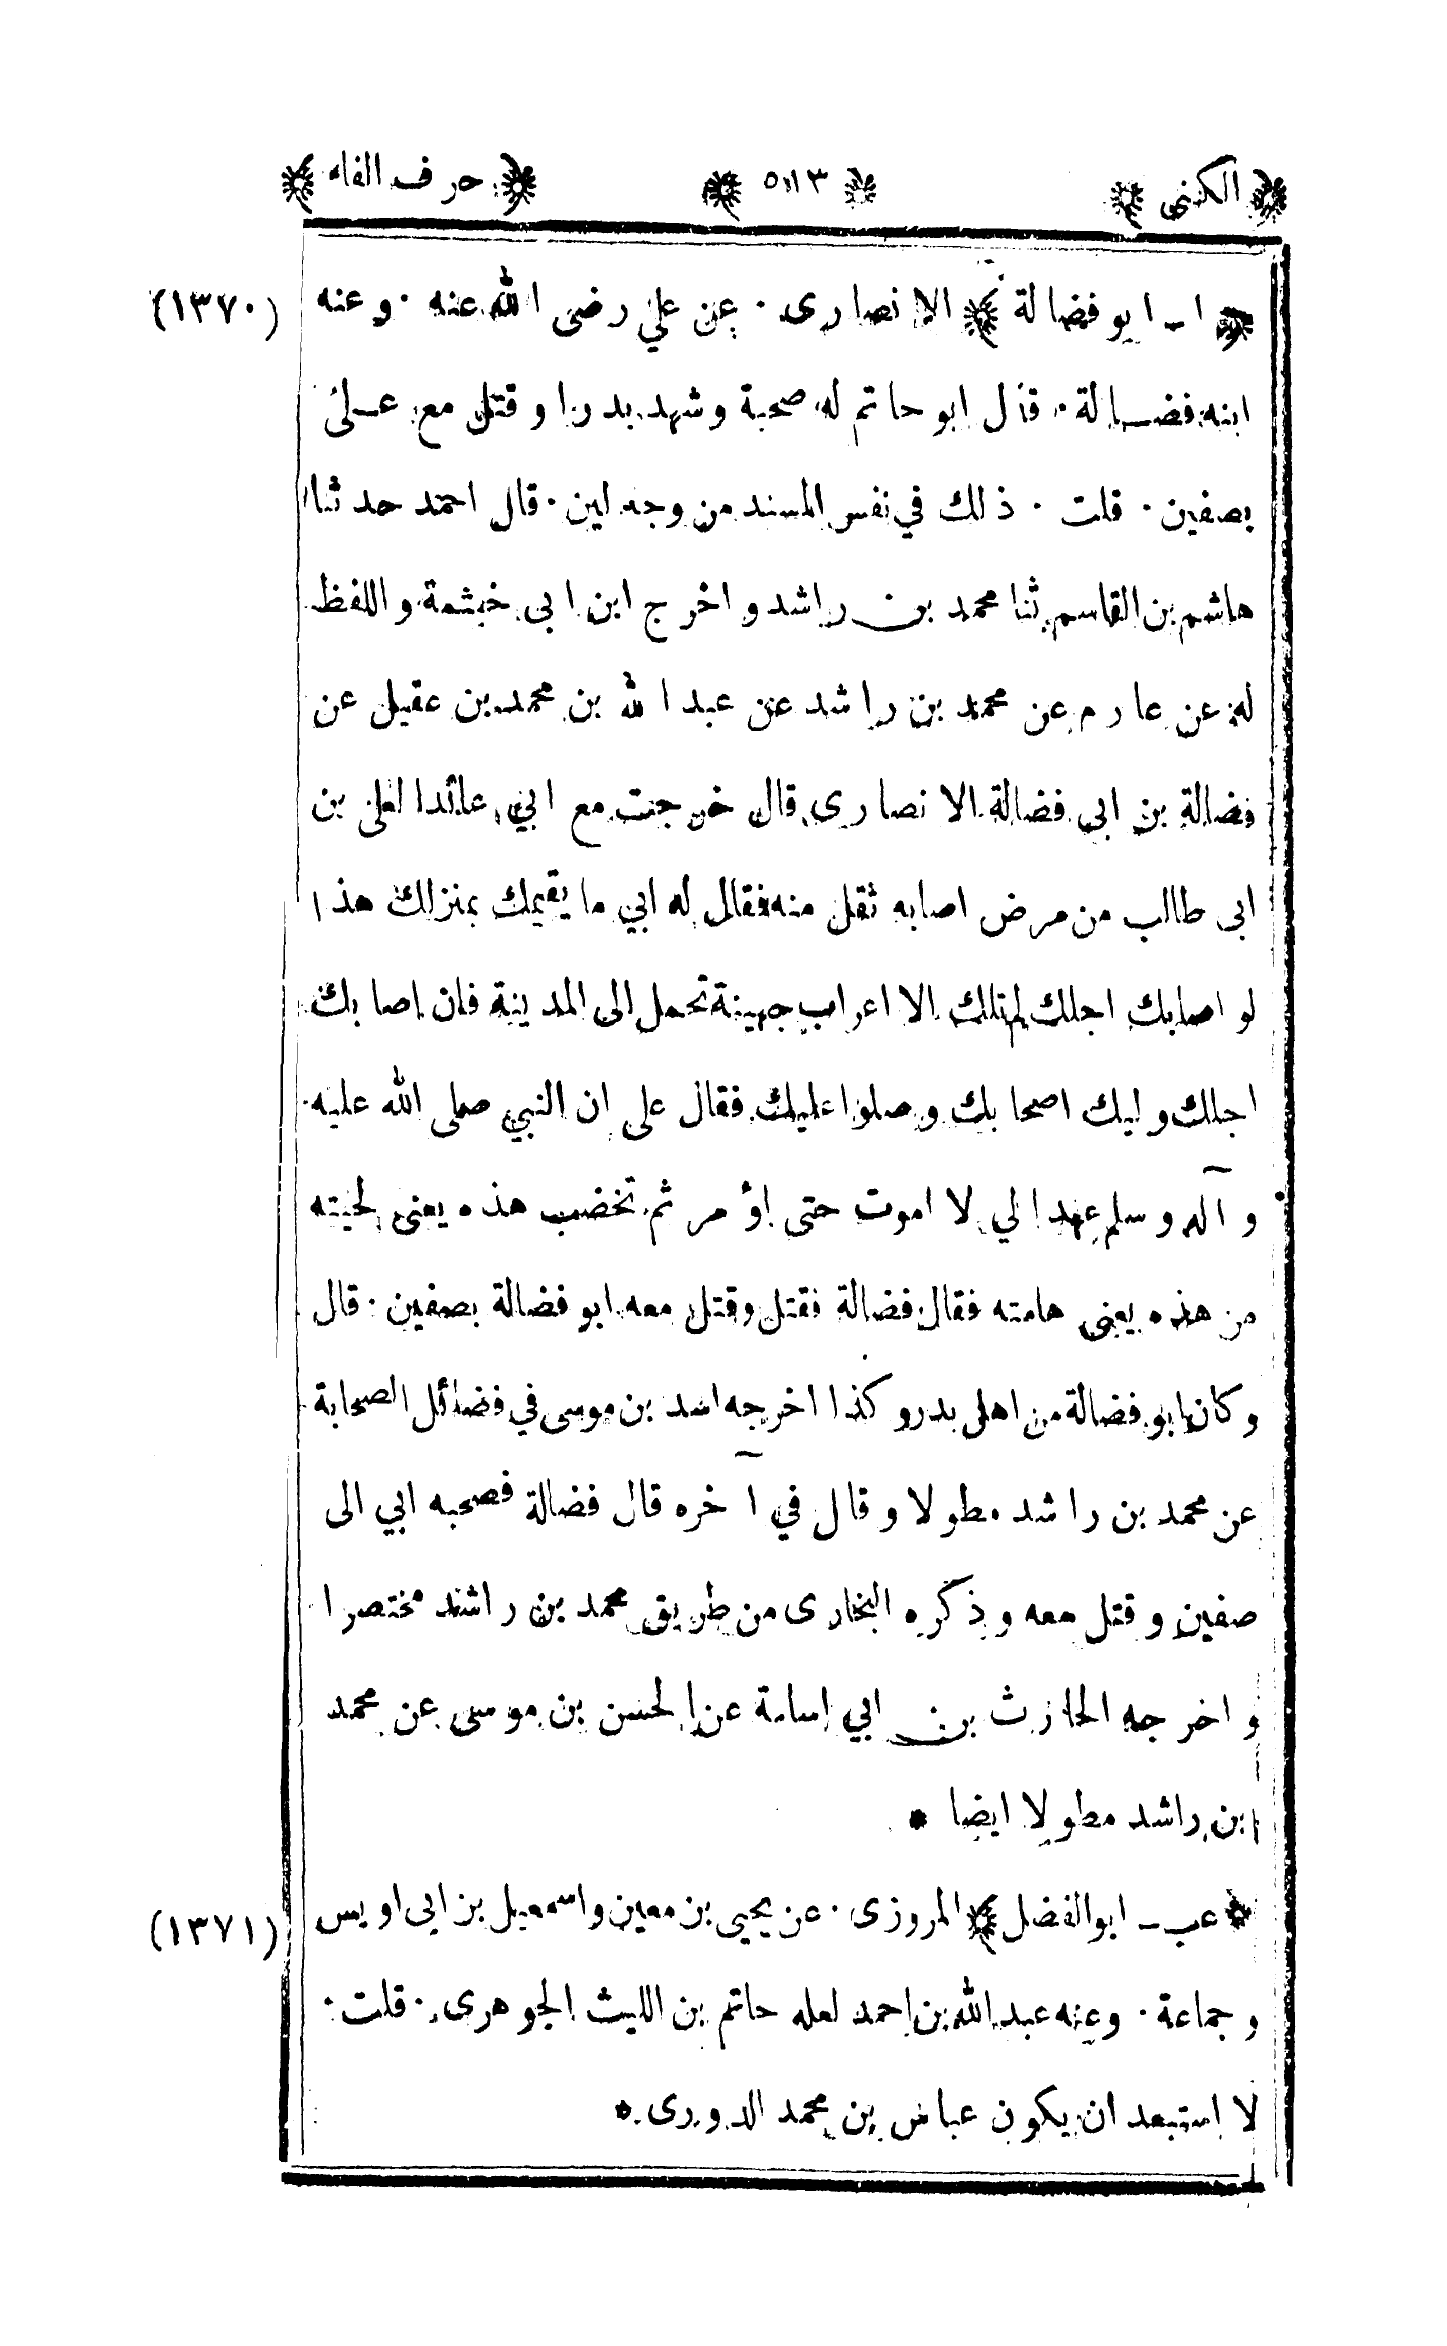 الكنى ٥١٣ حرف الفاء
(١٣٧٠) ا ـ ابو فضالة الانصارى · عن علي رضى الله عنه · وعنه
ابنه فضالة · قال ابو حاتم له صحبة وشهد بدرا وقتل مع على
بصفين · قلت · ذلك في نفس المسند من وجه لين · قال احمد حدثنا
هاشم بن القاسم ثنا محمد بن راشد واخرج ابن ابى خيثمة واللفظ
له عن عارم عن محمد بن راشد عن عبد الله بن محمد بن عقيل عن
فضالة بن ابى فضالة الانصارى قال خرجت مع ابي عائدا لعلى بن
ابى طالب من مرض اصابه ثقل منه فقال له ابي ما يقيمك بمنزلك هذا
لو اصابك اجلك لم تلك الا اعراب جهينة تحمل الى المدينة فان اصابك
اجلك وليك اصحابك وصلوا عليك فقال على ان النبي صلى الله عليه
وآله وسلم عهد الي لا اموت حتى اؤمر ثم تخضب هذه يعنى لحيته
من هذه يعنى هامته فقال فضالة فقتل وقتل معه ابو فضالة بصفين · قال
وكان ابو فضالة من اهل بدر وكذا اخرجه اسد بن موسى في فضائل الصحابة
عن محمد بن راشد مطولا وقال في آخره قال فضالة فصحبه ابي الى
صفين وقتل معه وذكره البخارى من طريق محمد بن راشد مختصرا
واخرجه الحارث بن ابي اسامة عن الحسن بن موسى عن محمد
ابن راشد مطولا ايضا *
(١٣٧١) عب ـ ابو الفضل المروزى · عن يحيى بن معين واسمعيل بن ابى اويس
وجماعة · وعنه عبد الله بن احمد لعله حاتم بن الليث الجوهرى · قلت ·
لا استبعد ان يكون عباس بن محمد الدورى *